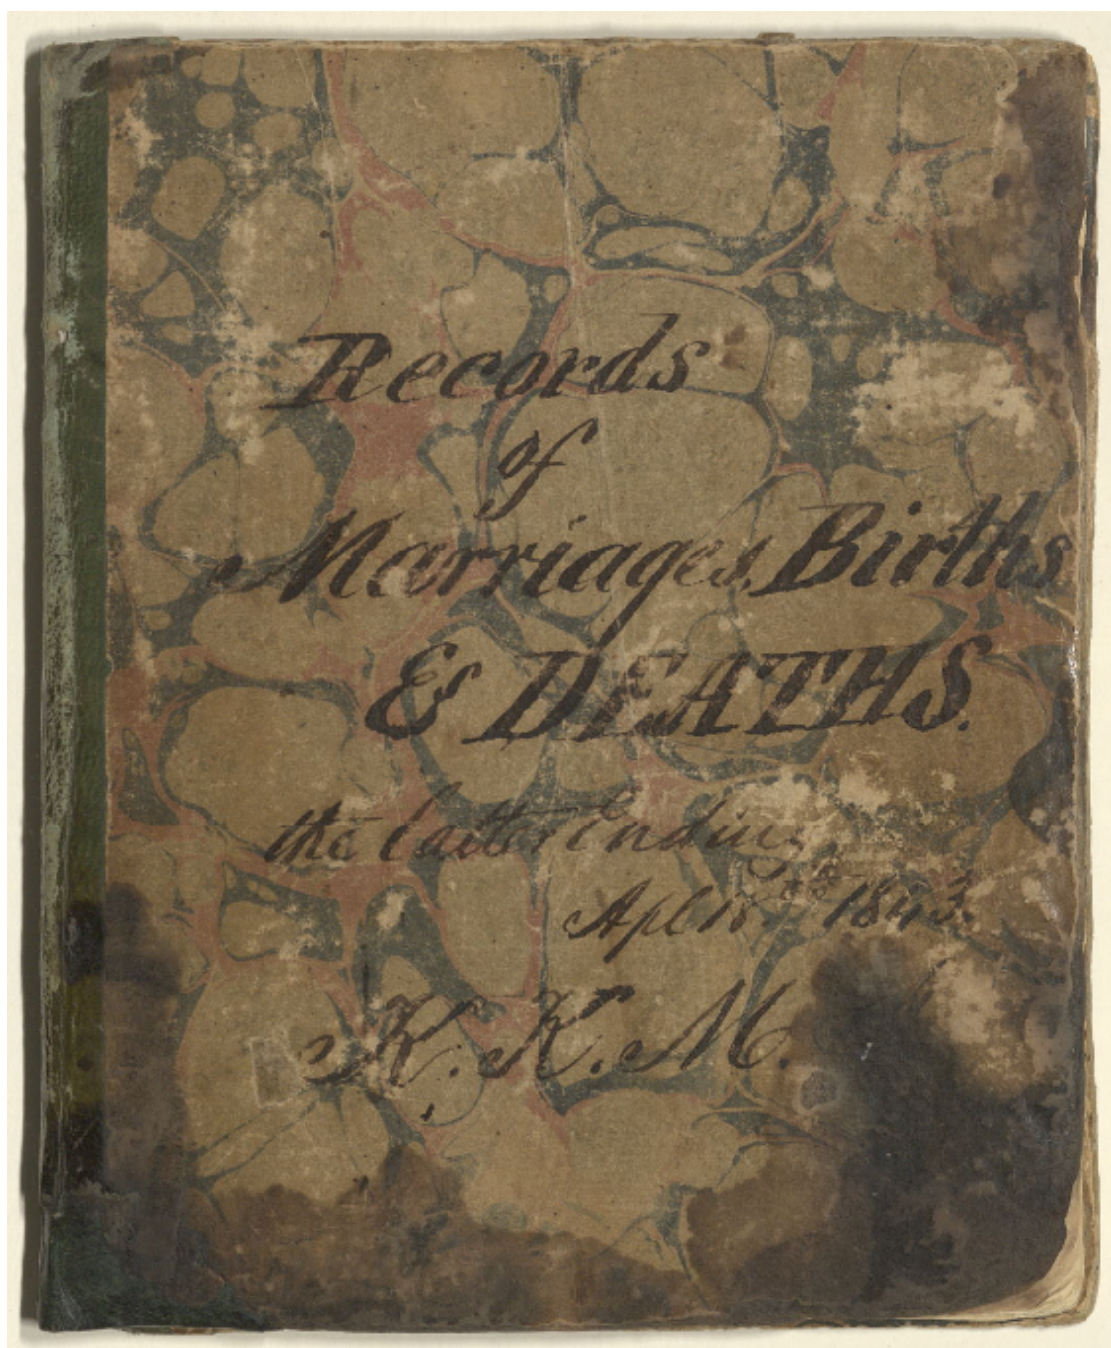 Records
of
Marriages, Births
& DEATHS.
the latter Ending
Apl 18th 1843.
K. K. M.